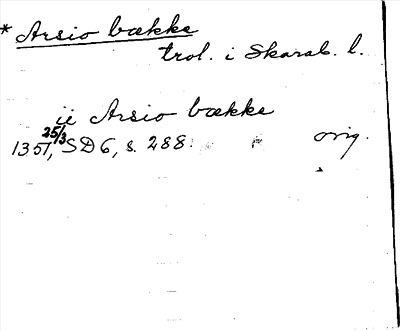 * Arsio bække
trol. i Skarab. l.
ii Arsio bække
1351, 25/3 SD 6, s. 288. orig.